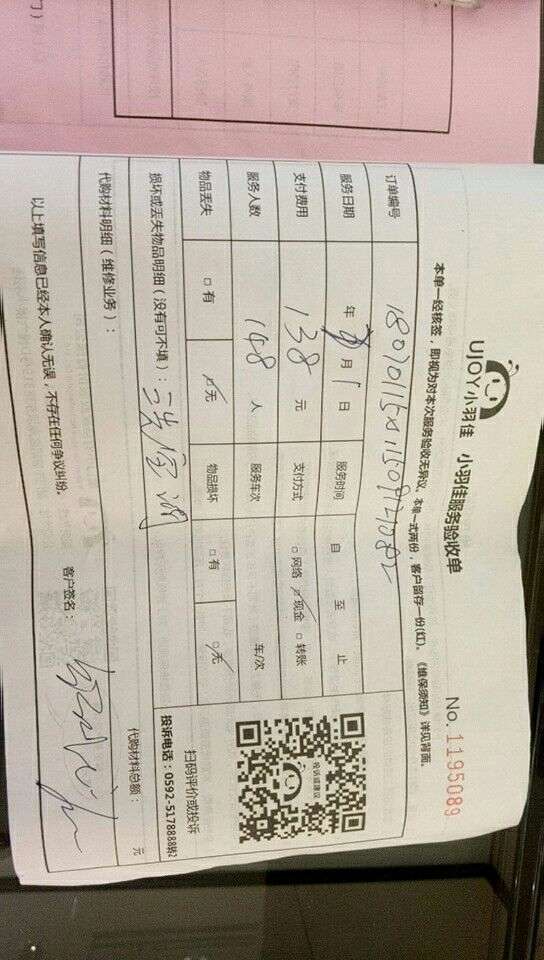 UJOY小羽佳 小羽佳服务验收单 No.1195089
本单一经核签，即视为对本次服务验收无异议。本单一式两份，客户留存一份(红)。《维保须知》详见背面。
订单编号
服务日期 年 8 月 1 日 服务时间 自 至 止
支付费用 138 元 支付方式 □网络 ☑现金 □转账
服务人数 人 服务车次 车/次
物品丢失 □有 ☑无 物品损坏 □有 ☑无
损坏或丢失物品明细（没有可不填）：
投诉或建议
扫码评价或投诉
投诉电话：0592-5178888转2
代购材料明细（维修业务）： 代购材料总额： 元
以上填写信息已经本人确认无误，不存在任何争议纠纷。 客户签名：